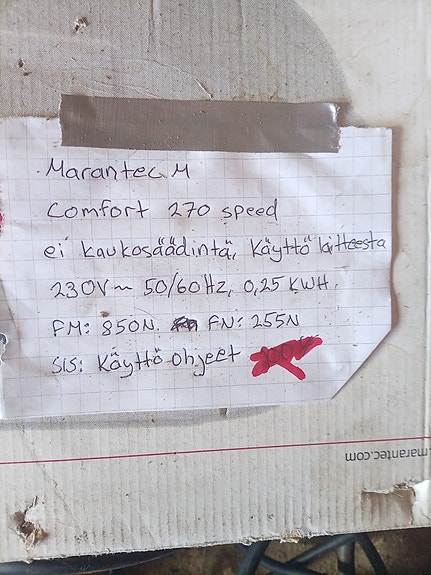 Marantec M
Comfort 270 speed
ei kaukosäädintä, Käyttö laitteesta
230V~ 50/60Hz, 0,25 KWH.
FM: 850N. FN: 255N
SIS: Käyttö ohjeet
marantec.com